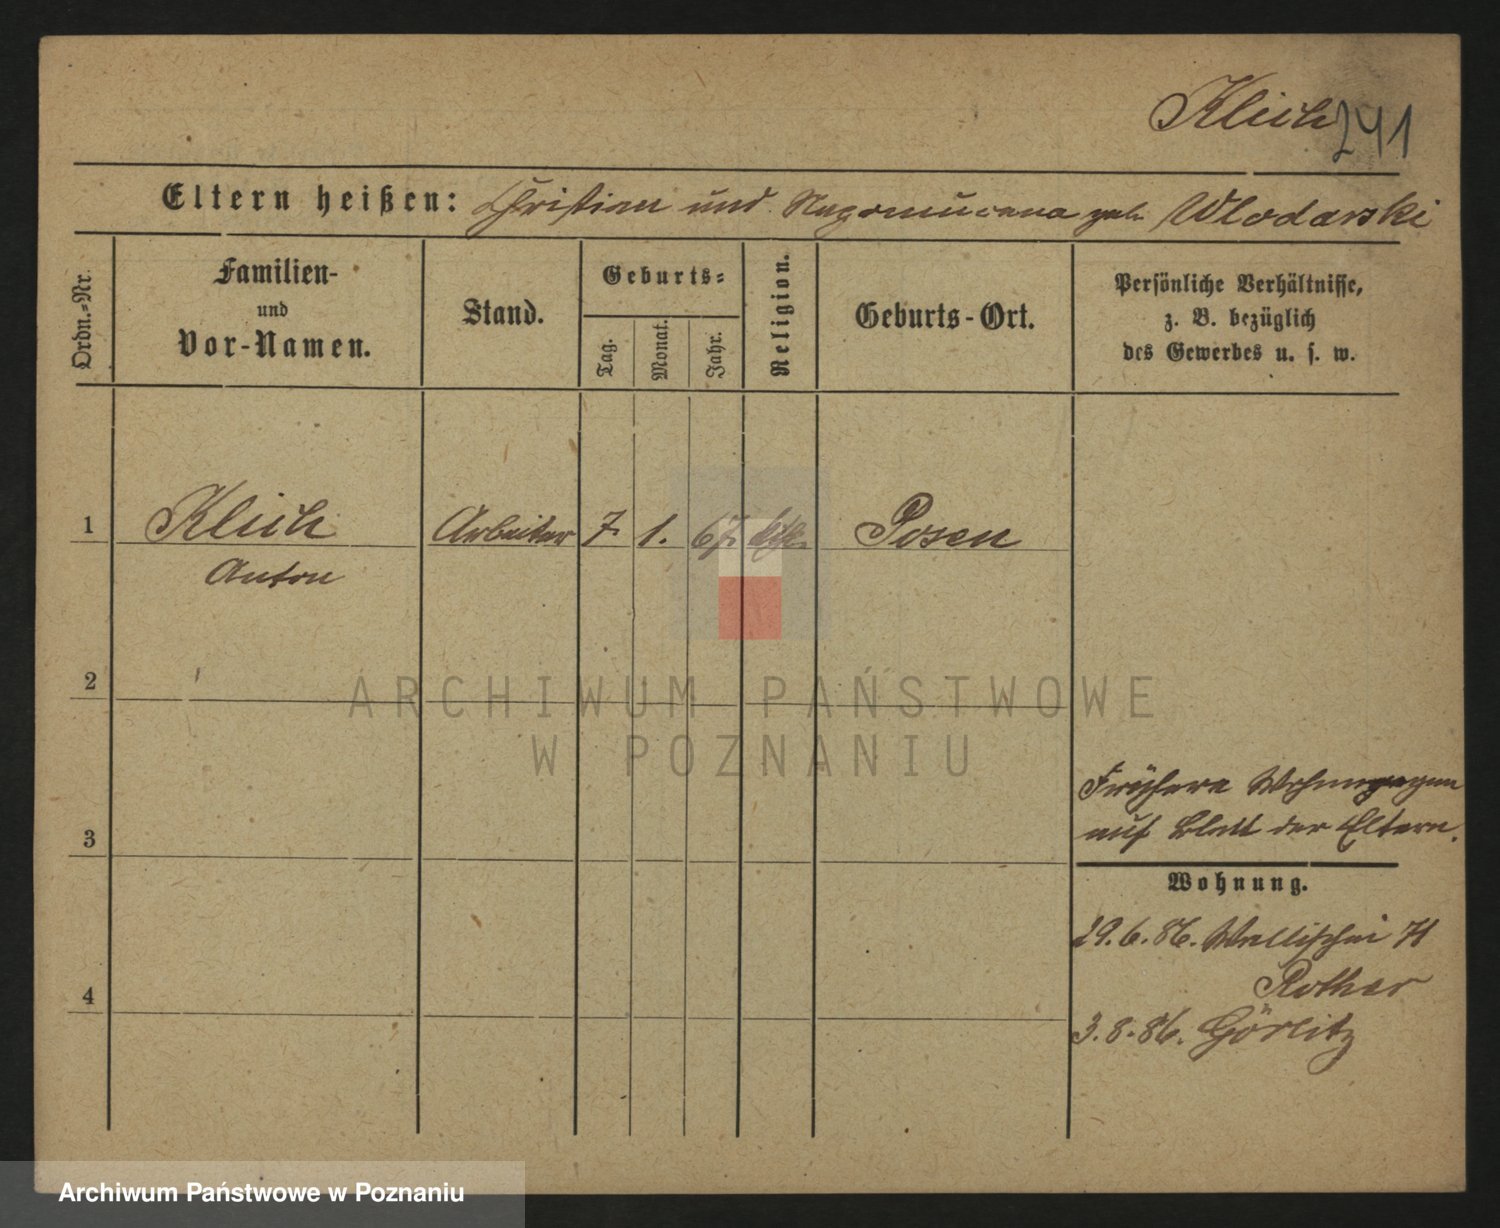 Klich
241
Eltern heißen: Christian und Nepomucena geb. Wlodarski
Ordn.-Nr.
Familien-
und
Vor-Namen.
Stand.
Geburts-
Tag.
Monat.
Jahr.
Religion.
Geburts-Ort.
Persönliche Verhältnisse,
z. B. bezüglich
des Gewerbes u. s. w.
1
Klich
Anton
Arbeiter
7.
1.
67.
kth.
Posen
2
ARCHIWUM PAŃSTWOWE
W POZNANIU
3
Frühere Wohnungen
auf Blatt der Eltern.
Wohnung.
29.6.86. Wallischei 71
Rother
4
3.8.86. Görlitz
Archiwum Państwowe w Poznaniu